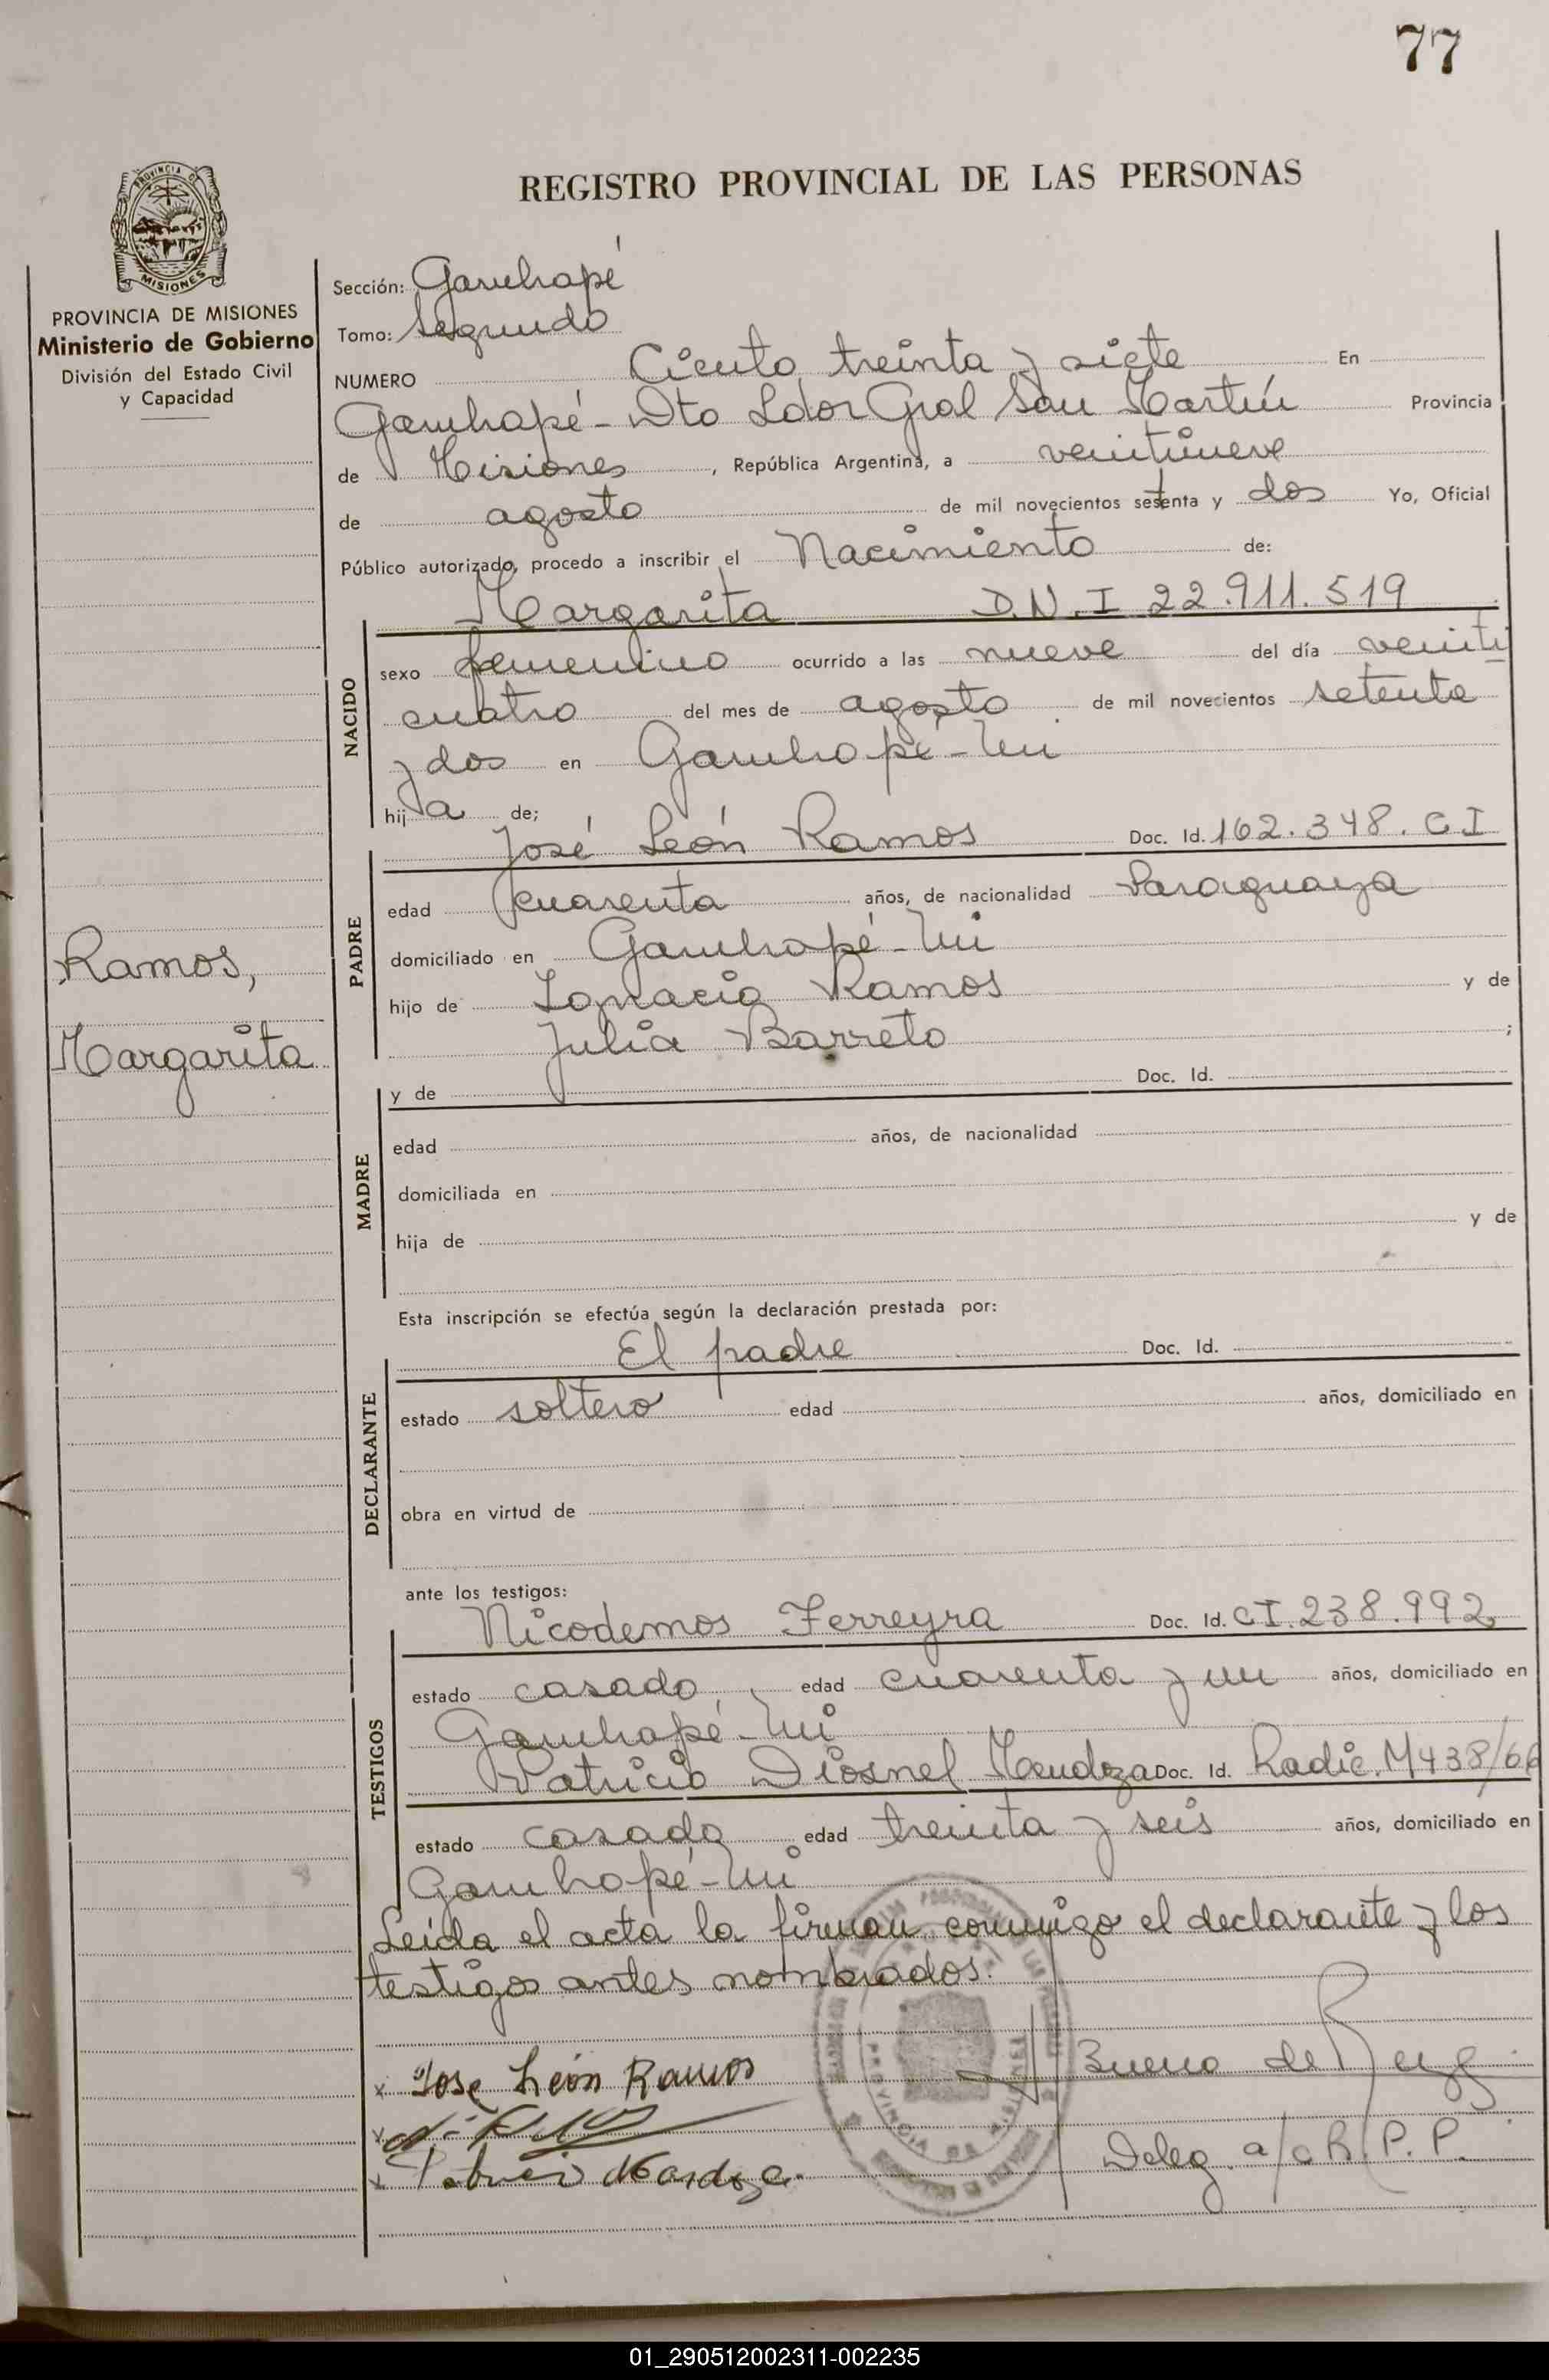 77
REGISTRO PROVINCIAL DE LAS PERSONAS
PROVINCIA DE MISIONES
Ministerio de Gobierno
División del Estado Civil
y Capacidad
Ramos,
Margarita
Sección: Garuhapé
Tomo: Segundo
NUMERO Ciento treinta y siete En
Garuhapé - Dto Ldor Gral San Martín Provincia
de Misiones, República Argentina, a veintinueve
de agosto de mil novecientos setenta y dos Yo, Oficial
Público autorizado, procedo a inscribir el Nacimiento de:
NACIDO
Margarita D.N.I 22.911.519
sexo femenino ocurrido a las nueve del día veinti
cuatro del mes de agosto de mil novecientos setenta
y dos en Garuhapé - Mi
hija de;
PADRE
José León Ramos Doc. Id. 162.348. C I
edad cuarenta años, de nacionalidad Paraguaya
domiciliado en Garuhapé - Mi
hijo de Ignacio Ramos y de
Julia Barreto ;
MADRE
y de Doc. Id.
edad años, de nacionalidad
domiciliada en
hija de y de
Esta inscripción se efectúa según la declaración prestada por:
DECLARANTE
El padre Doc. Id.
estado soltero edad años, domiciliado en
obra en virtud de
ante los testigos:
TESTIGOS
Nicodemos Ferreyra Doc. Id. CI. 238.992
estado casado edad cuarenta y un años, domiciliado en
Garuhapé - Mi
Patricio Diosnel Mendoza Doc. Id. Radic. M438/66
estado casado edad treinta y seis años, domiciliado en
Garuhapé - Mi
Leída el acta la firman conmigo el declarante y los
testigos antes nombrados.
x Jose León Ramos
x
x Patricio Mendoza
Bueno de
Deleg. a/c R.P.P.
PROVINCIA DE MISIONES
01_290512002311-002235